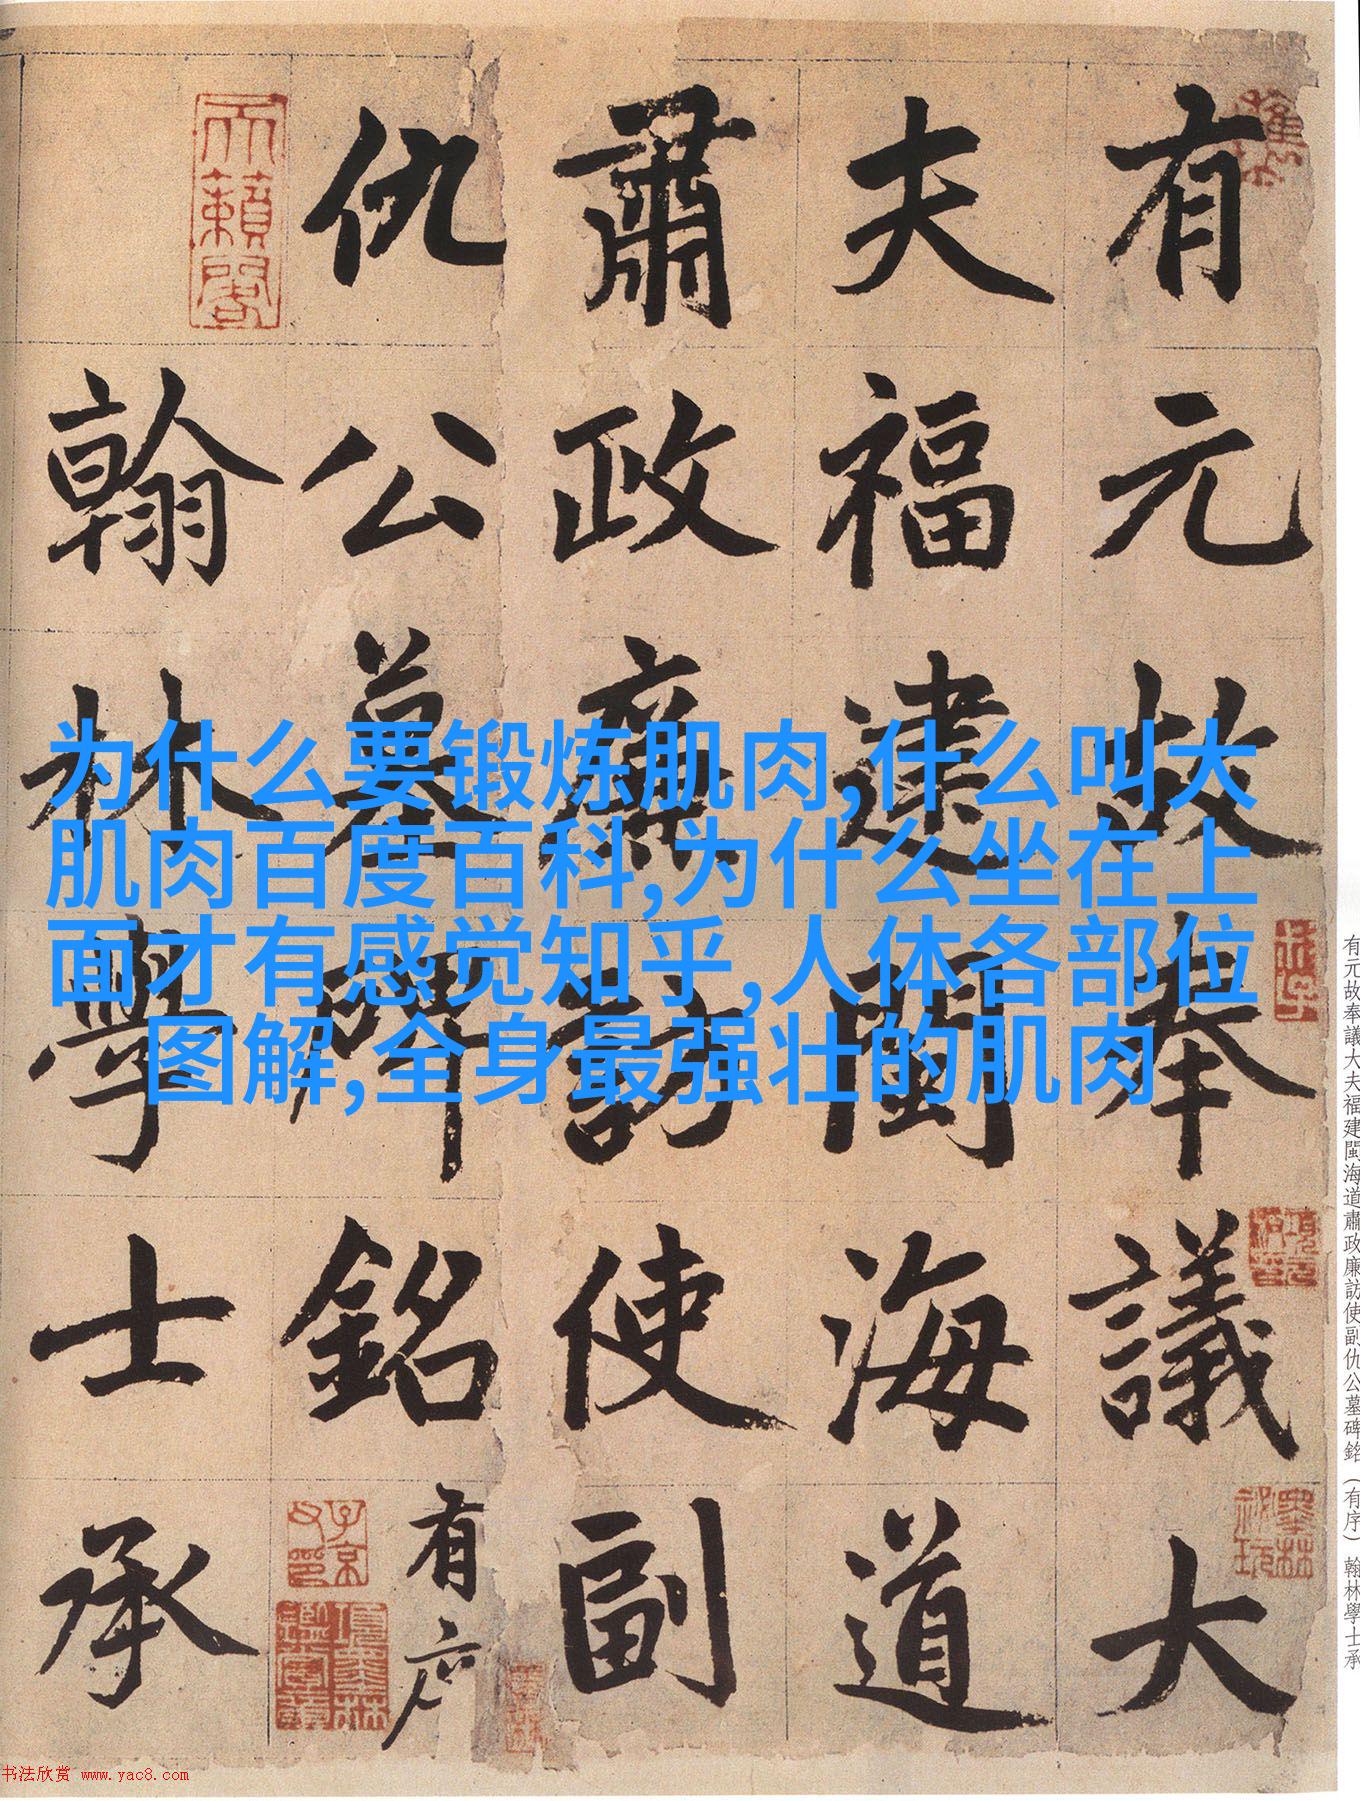 有元故奉議大
夫福建閩海道
肅政廉訪使副
仇公墓碑銘有序
翰林學士承
天籟閣
子京父印
項墨林鑑賞章
墨林秘玩
项元汴印
为什么要锻炼肌肉,什么叫大
肌肉百度百科,为什么坐在上
面才有感觉知乎,人体各部位
图解,全身最强壮的肌肉
有元故奉議大夫福建閩海道肅政廉訪使副仇公墓碑銘(有序) 翰林學士承
书法欣赏 www.yac8.com